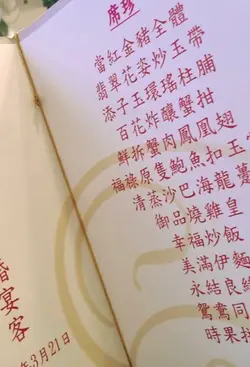 席珍
當紅金豬全體
翡翠花姿炒玉帶
添子玉環瑤柱脯
百花炸釀蟹拑
鮮拆蟹肉鳳凰翅
福祿原隻鮑魚扣玉
清蒸沙巴海龍躉
御品燒雞皇
幸福炒飯
美滿伊麵
永結良緣
鴛鴦同
時果拼
婚宴客
年3月21日